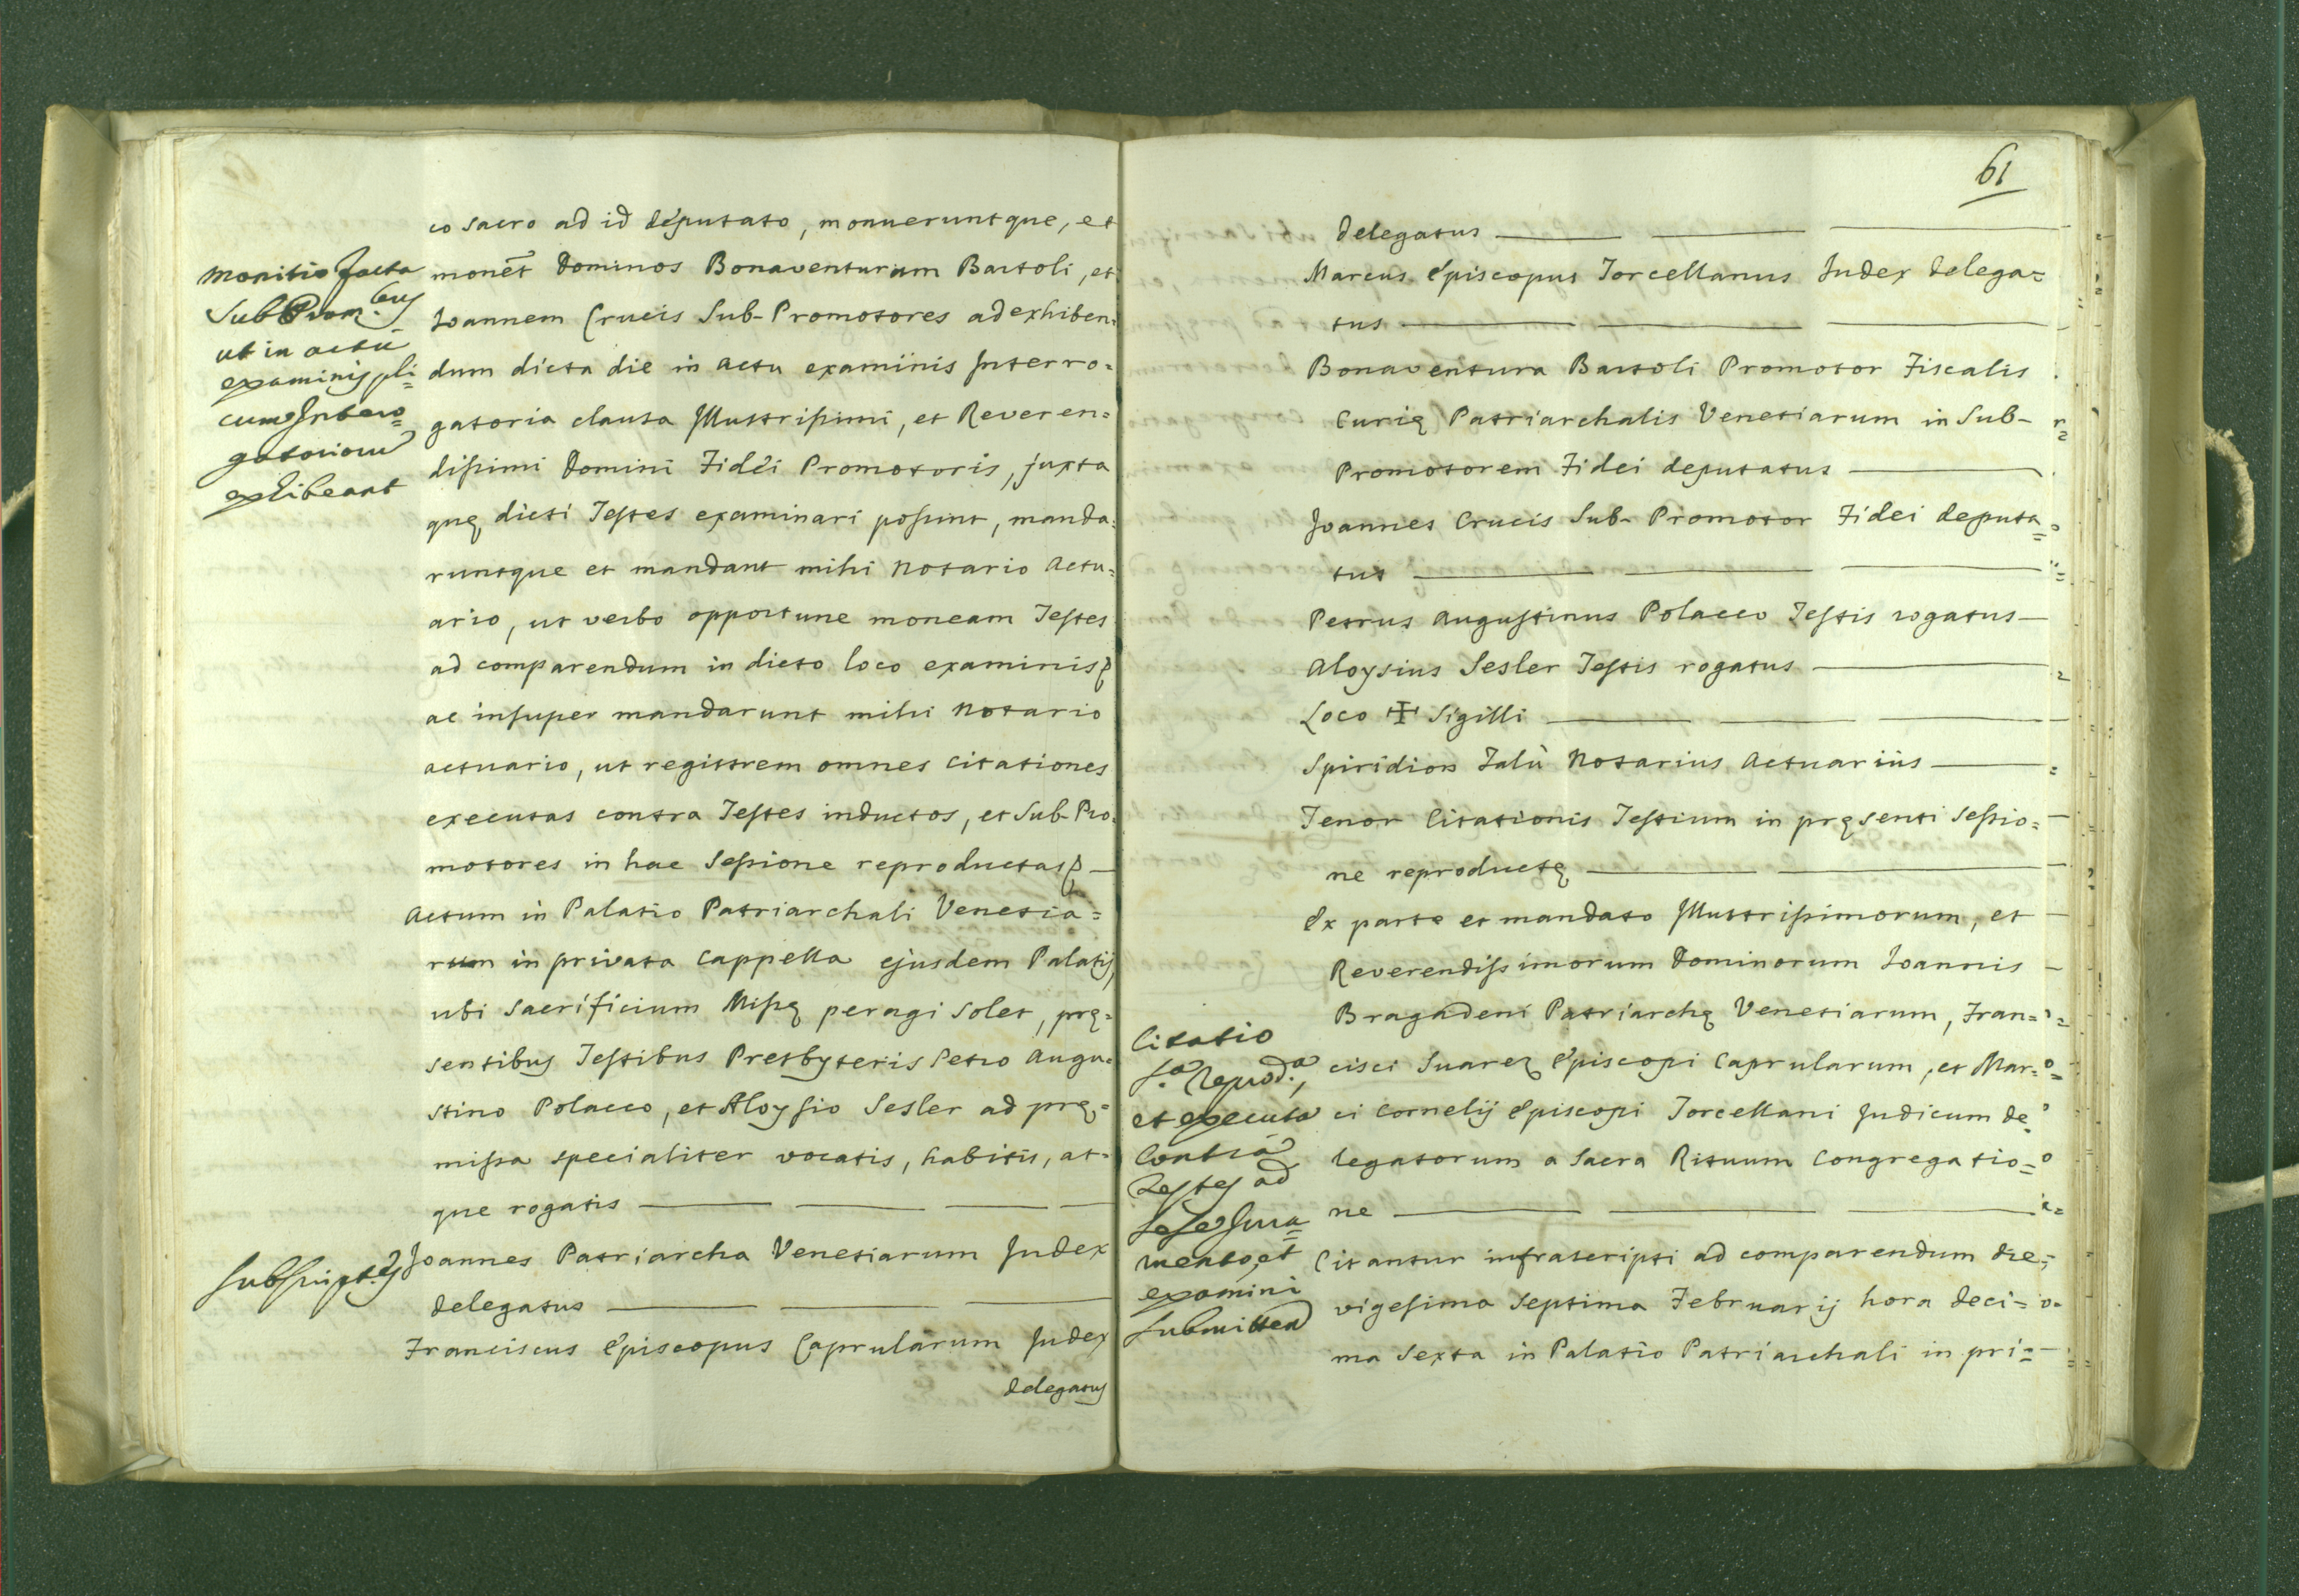 co sacro ad id deputato, monueruntque, et
monēt Dominos Bonaventuram Bartoli, et
Joannem Crucis Sub-Promotores ad exhiben=
dum dicta die in actu examinis Interro=
gatoria clausa Illustrissimi, et Reveren=
dissimi Domini Fidei Promotoris, juxta
quę dicti Testes examinari possint, manda=
runtque et mandant mihi Notario Actu=
ario, ut verbo opportune moneam Testes
ad comparendum in dicto loco examinis
ac insuper mandarunt mihi Notario
actuario, ut registrem omnes citationes
executas contra Testes inductos, et Sub-Pro=
motores in hac Sessione reproductas
Actum in Palatio Patriarchali Venetia=
rum in privata Cappella ejusdem Palatij
ubi Sacrificium Missę peragi solet, prę=
sentibus Testibus Presbyteris Petro Augu=
stino Polacco, et Aloysio Sesler ad prę=
missa specialiter vocatis, habitis, at=
que rogatis
Joannes Patriarcha Venetiarum Judex
delegatus
Franciscus Episcopus Caprularum Judex
delegatus
Monitio facta
Sub Prom.bus
ut in actu
examinis pli=
cum Interro=
gatorium
exhibeant
Subscript.es
61
delegatus
Marcus Episcopus Torcellanus Judex delega=
tus
Bonaventura Bartoli Promotor Fiscalis
Curię Patriarchalis Venetiarum in Sub-
Promotorem Fidei deputatus
Joannes Crucis Sub-Promotor Fidei deputa=
tus
Petrus Augustinus Polacco Testis rogatus
Aloysius Sesler Testis rogatus
Loco ✠ Sigilli
Spiridion Talù Notarius Actuarius
Tenor Citationis Testium in pręsenti Sessio=
ne reproductę
Ex parte et mandato Illustrissimorum, et
Reverendissimorum Dominorum Joannis
Bragadeni Patriarchę Venetiarum, Fran=
cisci Suarez Episcopi Caprularum, et Mar=
ci Cornelij Episcopi Torcellani Judicum de=
legatorum a Sacra Rituum Congregatio=
ne
Citantur infrascripti ad comparendum die
vigesima septima Februarij hora deci=
ma sexta in Palatio Patriarchali in pri=
Citatio
Reprod.a,
et executa
Contra
Testes ad
se se Jura=
mento, et
examini